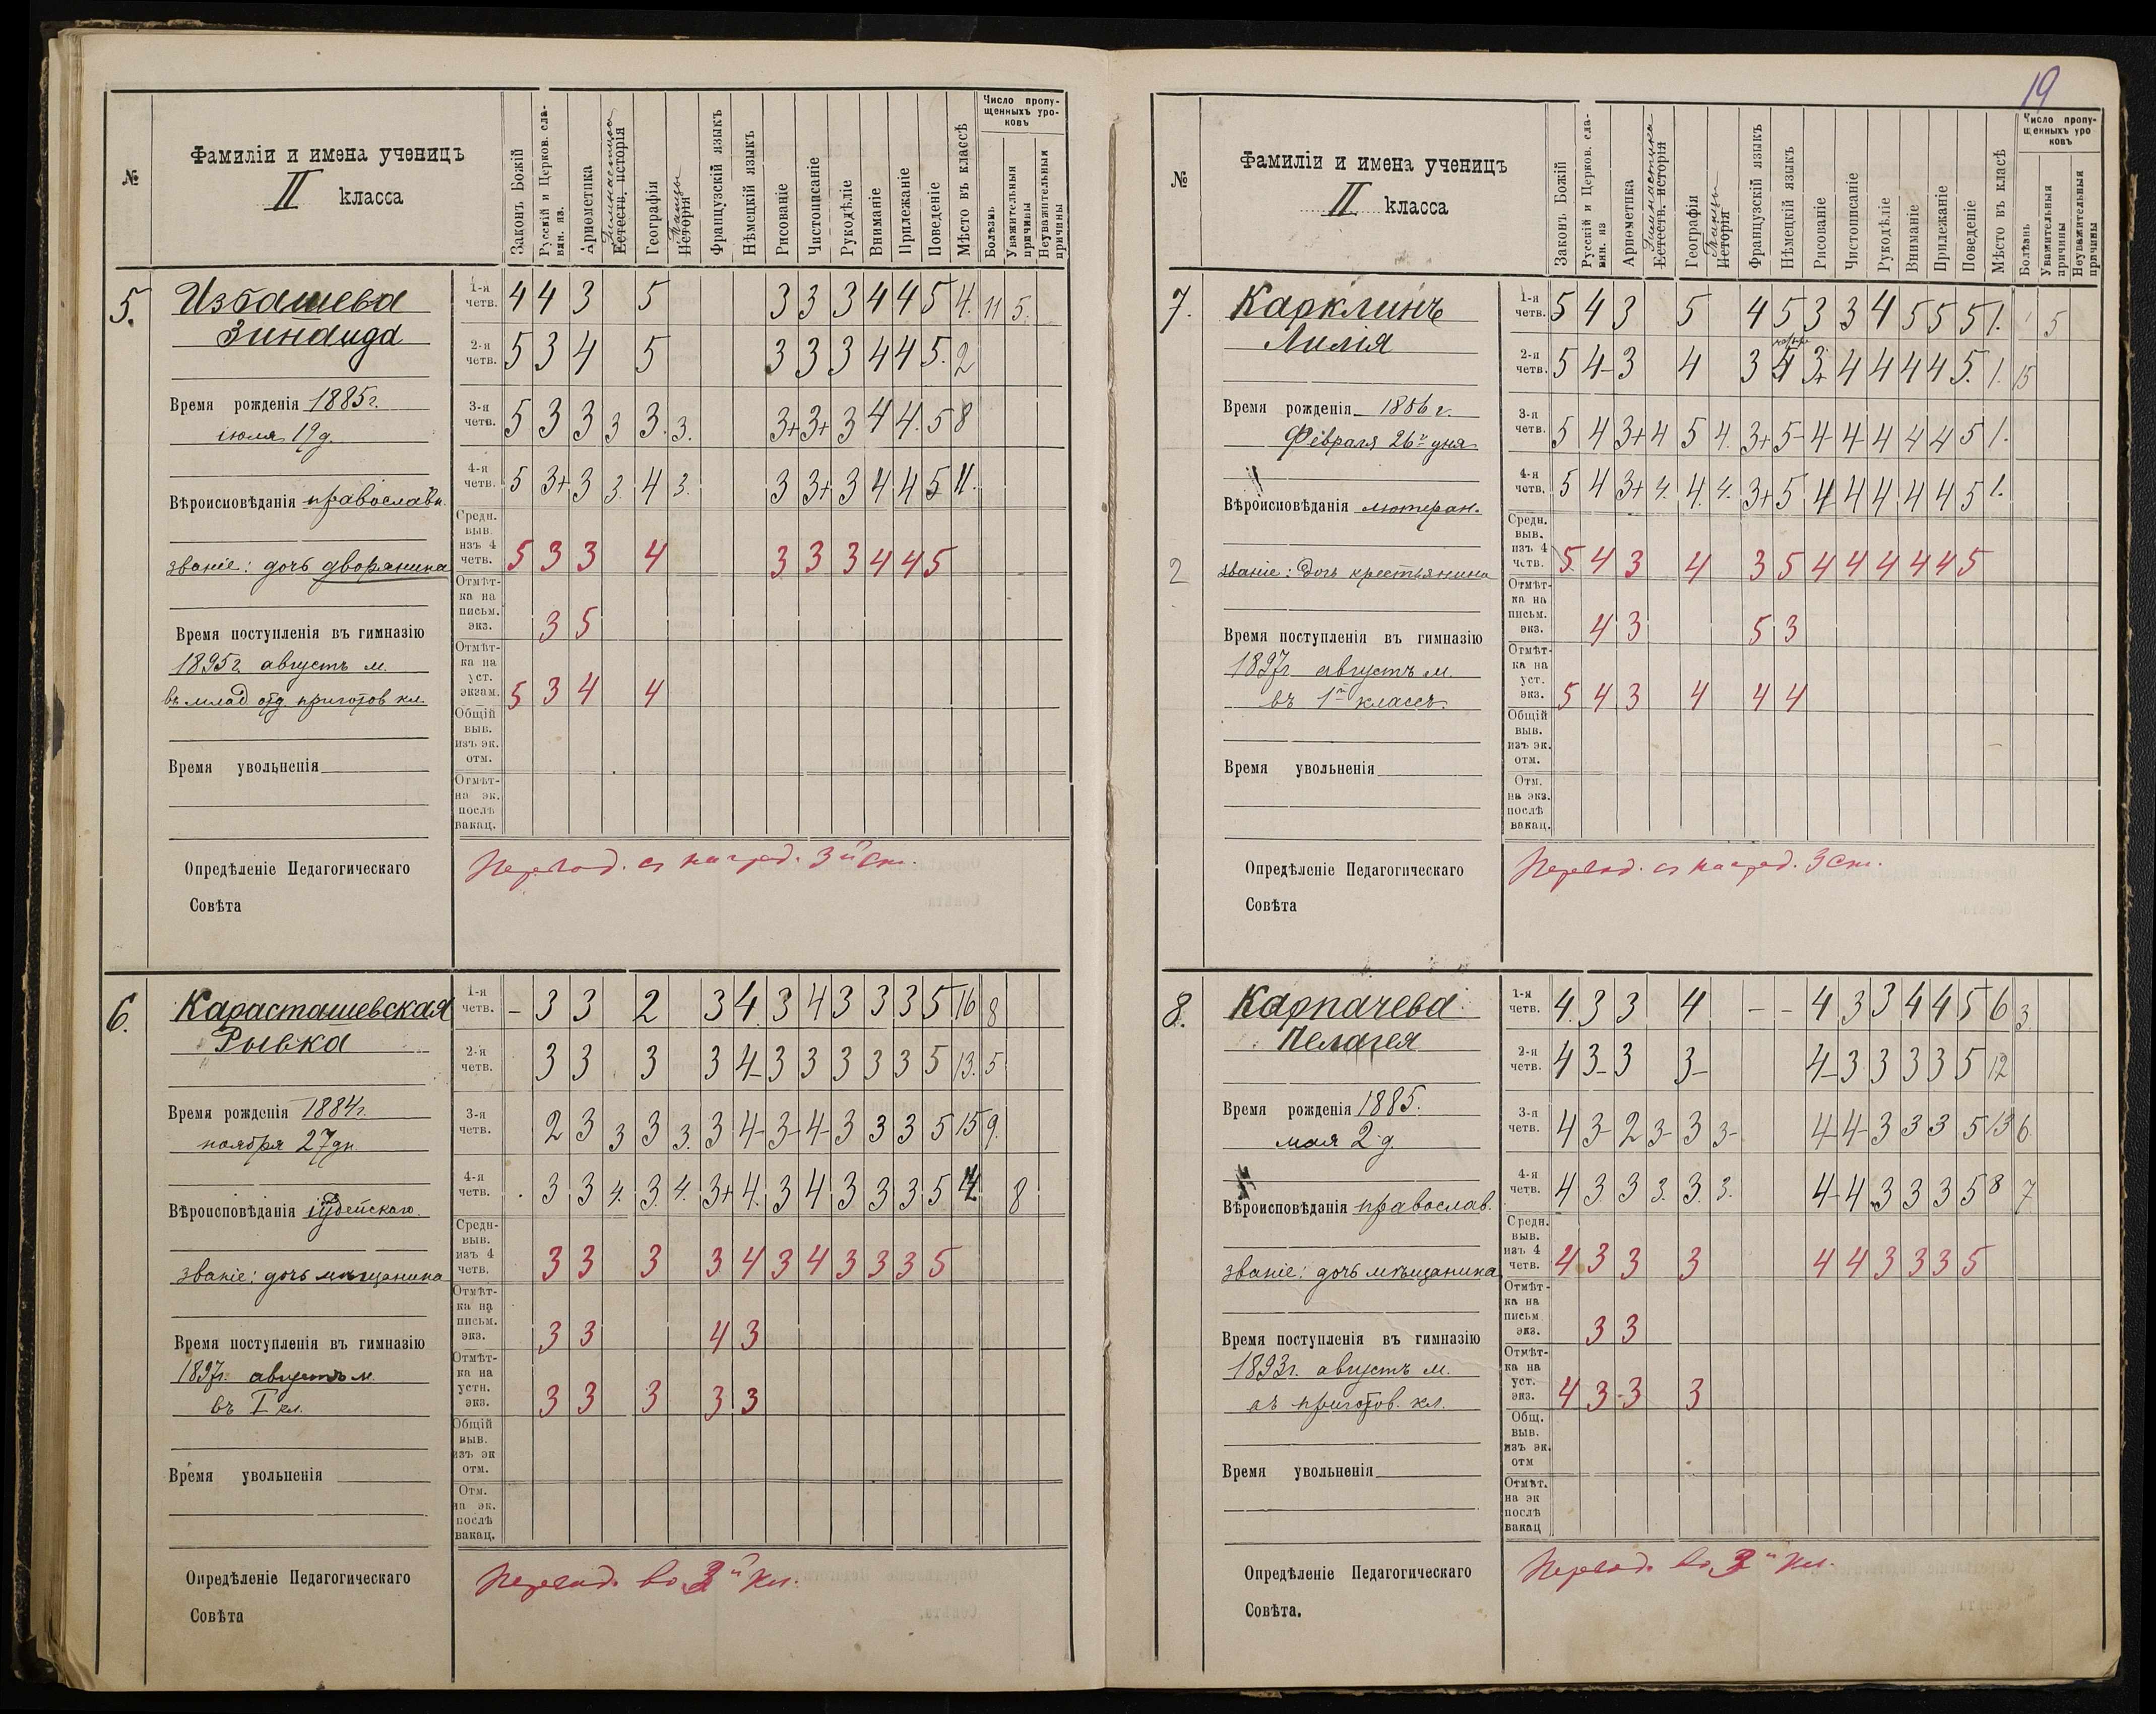 19
№
Фамиліи и имена ученицъ
II класса
Законъ Божій
Русскій и Церков. сла-
вян. яз.
Ариѳметика
Гимнастика
Естеств. исторія
Географія
Танцы
Исторія
Французскій языкъ
Нѣмецкій языкъ
Рисованіе
Чистописаніе
Рукодѣліе
Вниманіе
Прилежаніе
Поведеніе
Мѣсто въ классѣ
Число пропу-
щенныхъ уро-
ковъ
Болѣзнь
Уважительныя
причины
Неуважительныя
причины
5.
Избашева
Зинаида
Время рожденія 1885 г.
іюля 19 д.
Вѣроисповѣданія православн.
званіе: дочь дворянина
Время поступленія въ гимназію
1895 г. августъ м.
въ млад отд. приготов кл.
Время увольненія
1-я четв. 4 4 3 5 3 3 3 4 4 5 4. 11 5.
2-я четв. 5 3 4 5 3 3 3 4 4 5. 2
3-я четв. 5 3 3 3 3. 3. 3+ 3+ 3 4 4. 5 8
4-я четв. 5 3+ 3 3. 4 3. 3 3+ 3 4 4 5 11.
Средн. выв. изъ 4 четв. 5 3 3 4 3 3 3 4 4 5
Отмѣт-ка на письм. экз. 3 5
Отмѣт-ка на уст. экзам. 5 3 4 4
Общій выв. изъ эк. отм.
Отмѣт-на эк. послѣ вакац.
Опредѣленіе Педагогическаго
Совѣта
Перевод. съ наград. 3й ст.
6.
Карасташевская
Рывка
Время рожденія 1884 г.
ноября 27 дн.
Вѣроисповѣданія іудейскаго.
званіе: дочь мѣщанина
Время поступленія въ гимназію
1897 г. августъ м.
въ I кл.
Время увольненія
1-я четв. – 3 3 2 3 4 3 4 3 3 3 5 16 8
2-я четв. 3 3 3 3 4- 3 3 3 3 3 5 13. 5
3-я четв. 2 3 3 3 3. 3 4- 3- 4- 3 3 3 5 15 9.
4-я четв. 3 3 4. 3. 4. 3+ 4. 3 4 3 3 3 5 14 8
Средн. выв. изъ 4 четв. 3 3 3 3 4 3 4 3 3 3 5
Отмѣт-ка на письм. экз. 3 3 4 3
Отмѣт-ка на устн. экз. 3 3 3 3 3
Общій выв. изъ эк отм.
Отм. на эк. послѣ вакац.
Опредѣленіе Педагогическаго
Совѣта
Перевод. во 3й кл.
№
Фамиліи и имена ученицъ
II класса
Законъ Божій
Русскій и Церков. сла-
вян. яз
Ариѳметика
Гимнастика
Естеств. исторія
Географія
Танцы
Исторія
Французскій языкъ
Нѣмецкій языкъ
Рисованіе
Чистописаніе
Рукодѣліе
Вниманіе
Прилежаніе
Поведеніе
Мѣсто въ класѣ
Число пропу-
щенныхъ уро
ковъ
Болѣзнь
Уважительныя
причины
Неуважительныя
причины
7.
Карклинъ
Лилія
Время рожденія 1886 г.
Февраля 26го дня
Вѣроисповѣданія лютеран.
2
званіе: Дочь крестьянина
Время поступленія въ гимназію
1897 г. августъ м.
въ 1й классъ.
Время увольненія
1-я четв. 5 4 3 5 4 5 3 3 4 5 5 5 1. 5
2-я четв. 5 4- 3 4 3 4 3+ 4 4 4 4 5. 1. 15
3-я четв. 5 4 3+ 4 5 4. 3+ 5- 4- 4 4 4 4 5 1.
4-я четв. 5 4 3+ 4. 4. 4. 3+ 5 4 4 4 4 4 5 1.
Средн. выв. изъ 4 четв. 5 4 3 4 3 5 4 4 4 4 4 5
Отмѣт-ка на письм. экз. 4 3 5 3
Отмѣт-ка на уст. экз. 5 4 3 4 4 4
Общій выв. изъ эк. отм.
Отм. на экз. послѣ вакац.
Опредѣленіе Педагогическаго
Совѣта
Перевод. съ наград. 3 ст.
8.
Карпачева
Пелагея
Время рожденія 1885.
мая 2 д.
Вѣроисповѣданія православ.
званіе: дочь мѣщанина
Время поступленія въ гимназію
1893 г. августъ м.
въ приготов. кл.
Время увольненія
1-я четв. 4. 3 3 4 – – 4 3 3 4 4 5 6 3
2-я четв. 4 3- 3 3- 4- 3 3 3 3 5 12
3-я четв. 4 3- 2 3- 3 3- 4- 4- 3 3 3 5 13 6
4-я четв. 4 3 3 3. 3. 3. 4- 4 3 3 3 5 8 7
Средн. выв. изъ 4 четв. 4 3 3 3 4 4 3 3 3 5
Отмѣт-ка на письм экз. 3 3
Отмѣт-ка на уст. экз. 4 3 3 3
Общ. выв. изъ эк. отм
Отмѣт. на эк послѣ вакац
Опредѣленіе Педагогическаго
Совѣта.
Перевод. во 3й кл.